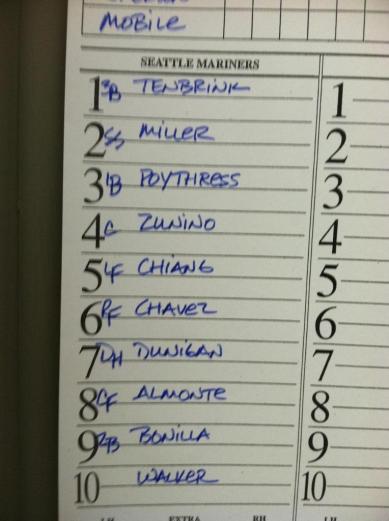 MOBILE
SEATTLE MARINERS
1 3B TENBRINK 1
2 SS MILLER 2
3 1B POYTHRESS 3
4 C ZUNINO 4
5 LF CHIANG 5
6 RF CHAVEZ 6
7 DH DUNIGAN 7
8 CF ALMONTE 8
9 2B BONILLA 9
10 WALKER 10
EXTRA RH LH